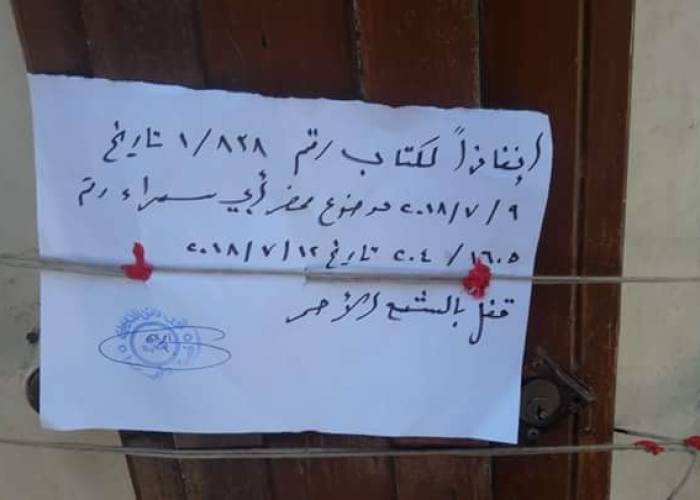 إنفاذاً لكتاب رقم ١/٨٣٨ تاريخ
٢٠١٨/٧/٩ موضوع محضر أبي سمراء رقم
٢٠٤/١٦٠٥ تاريخ ٢٠١٨/٧/١٢
قفل بالشمع الأحمر